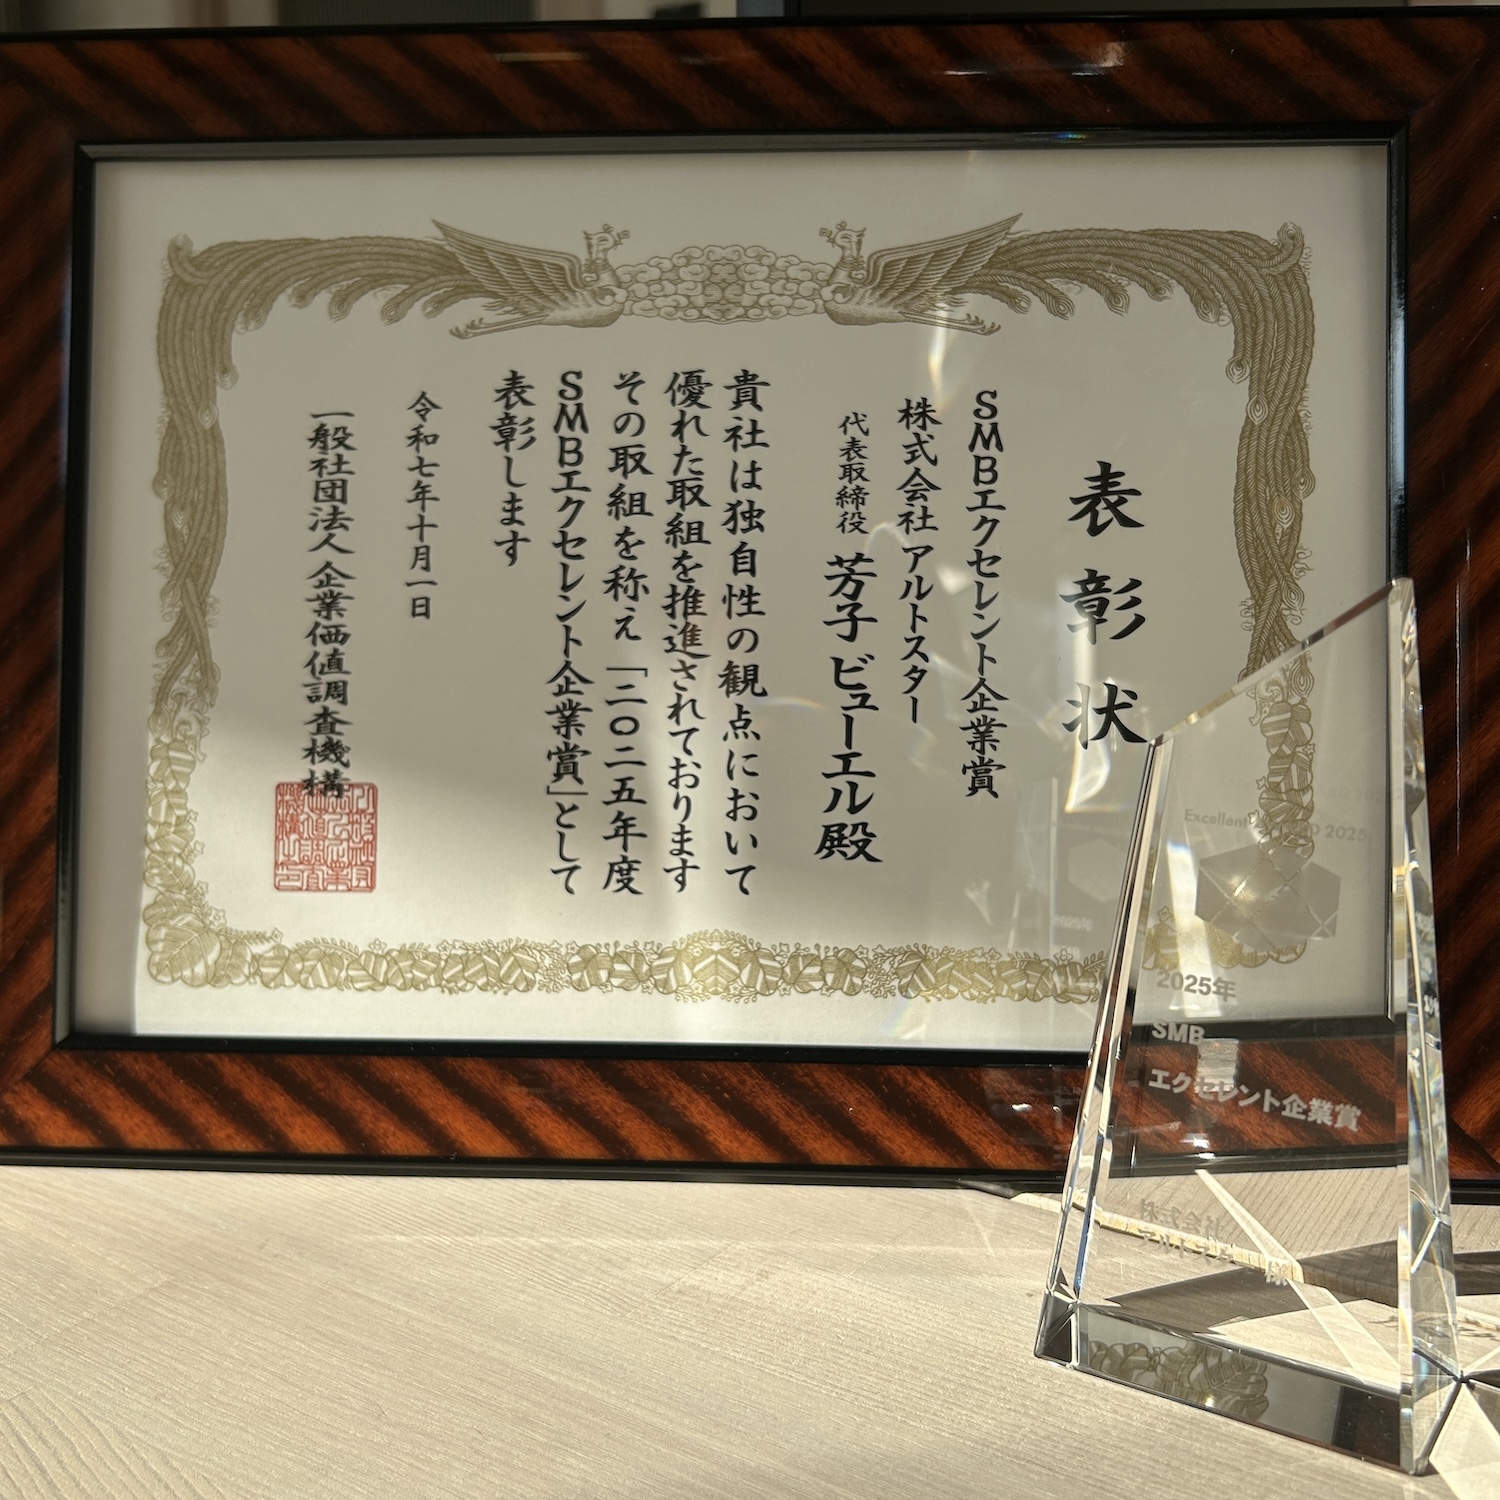 表彰状
SMBエクセレント企業賞
株式会社 アルトスター
代表取締役 芳子 ビューエル 殿
貴社は独自性の観点において
優れた取組を推進されております
その取組を称え「二〇二五年度
SMBエクセレント企業賞」として
表彰します
令和七年十月一日
一般社団法人 企業価値調査機構
2025年
SMB
エクセレント企業賞
株式会社
様